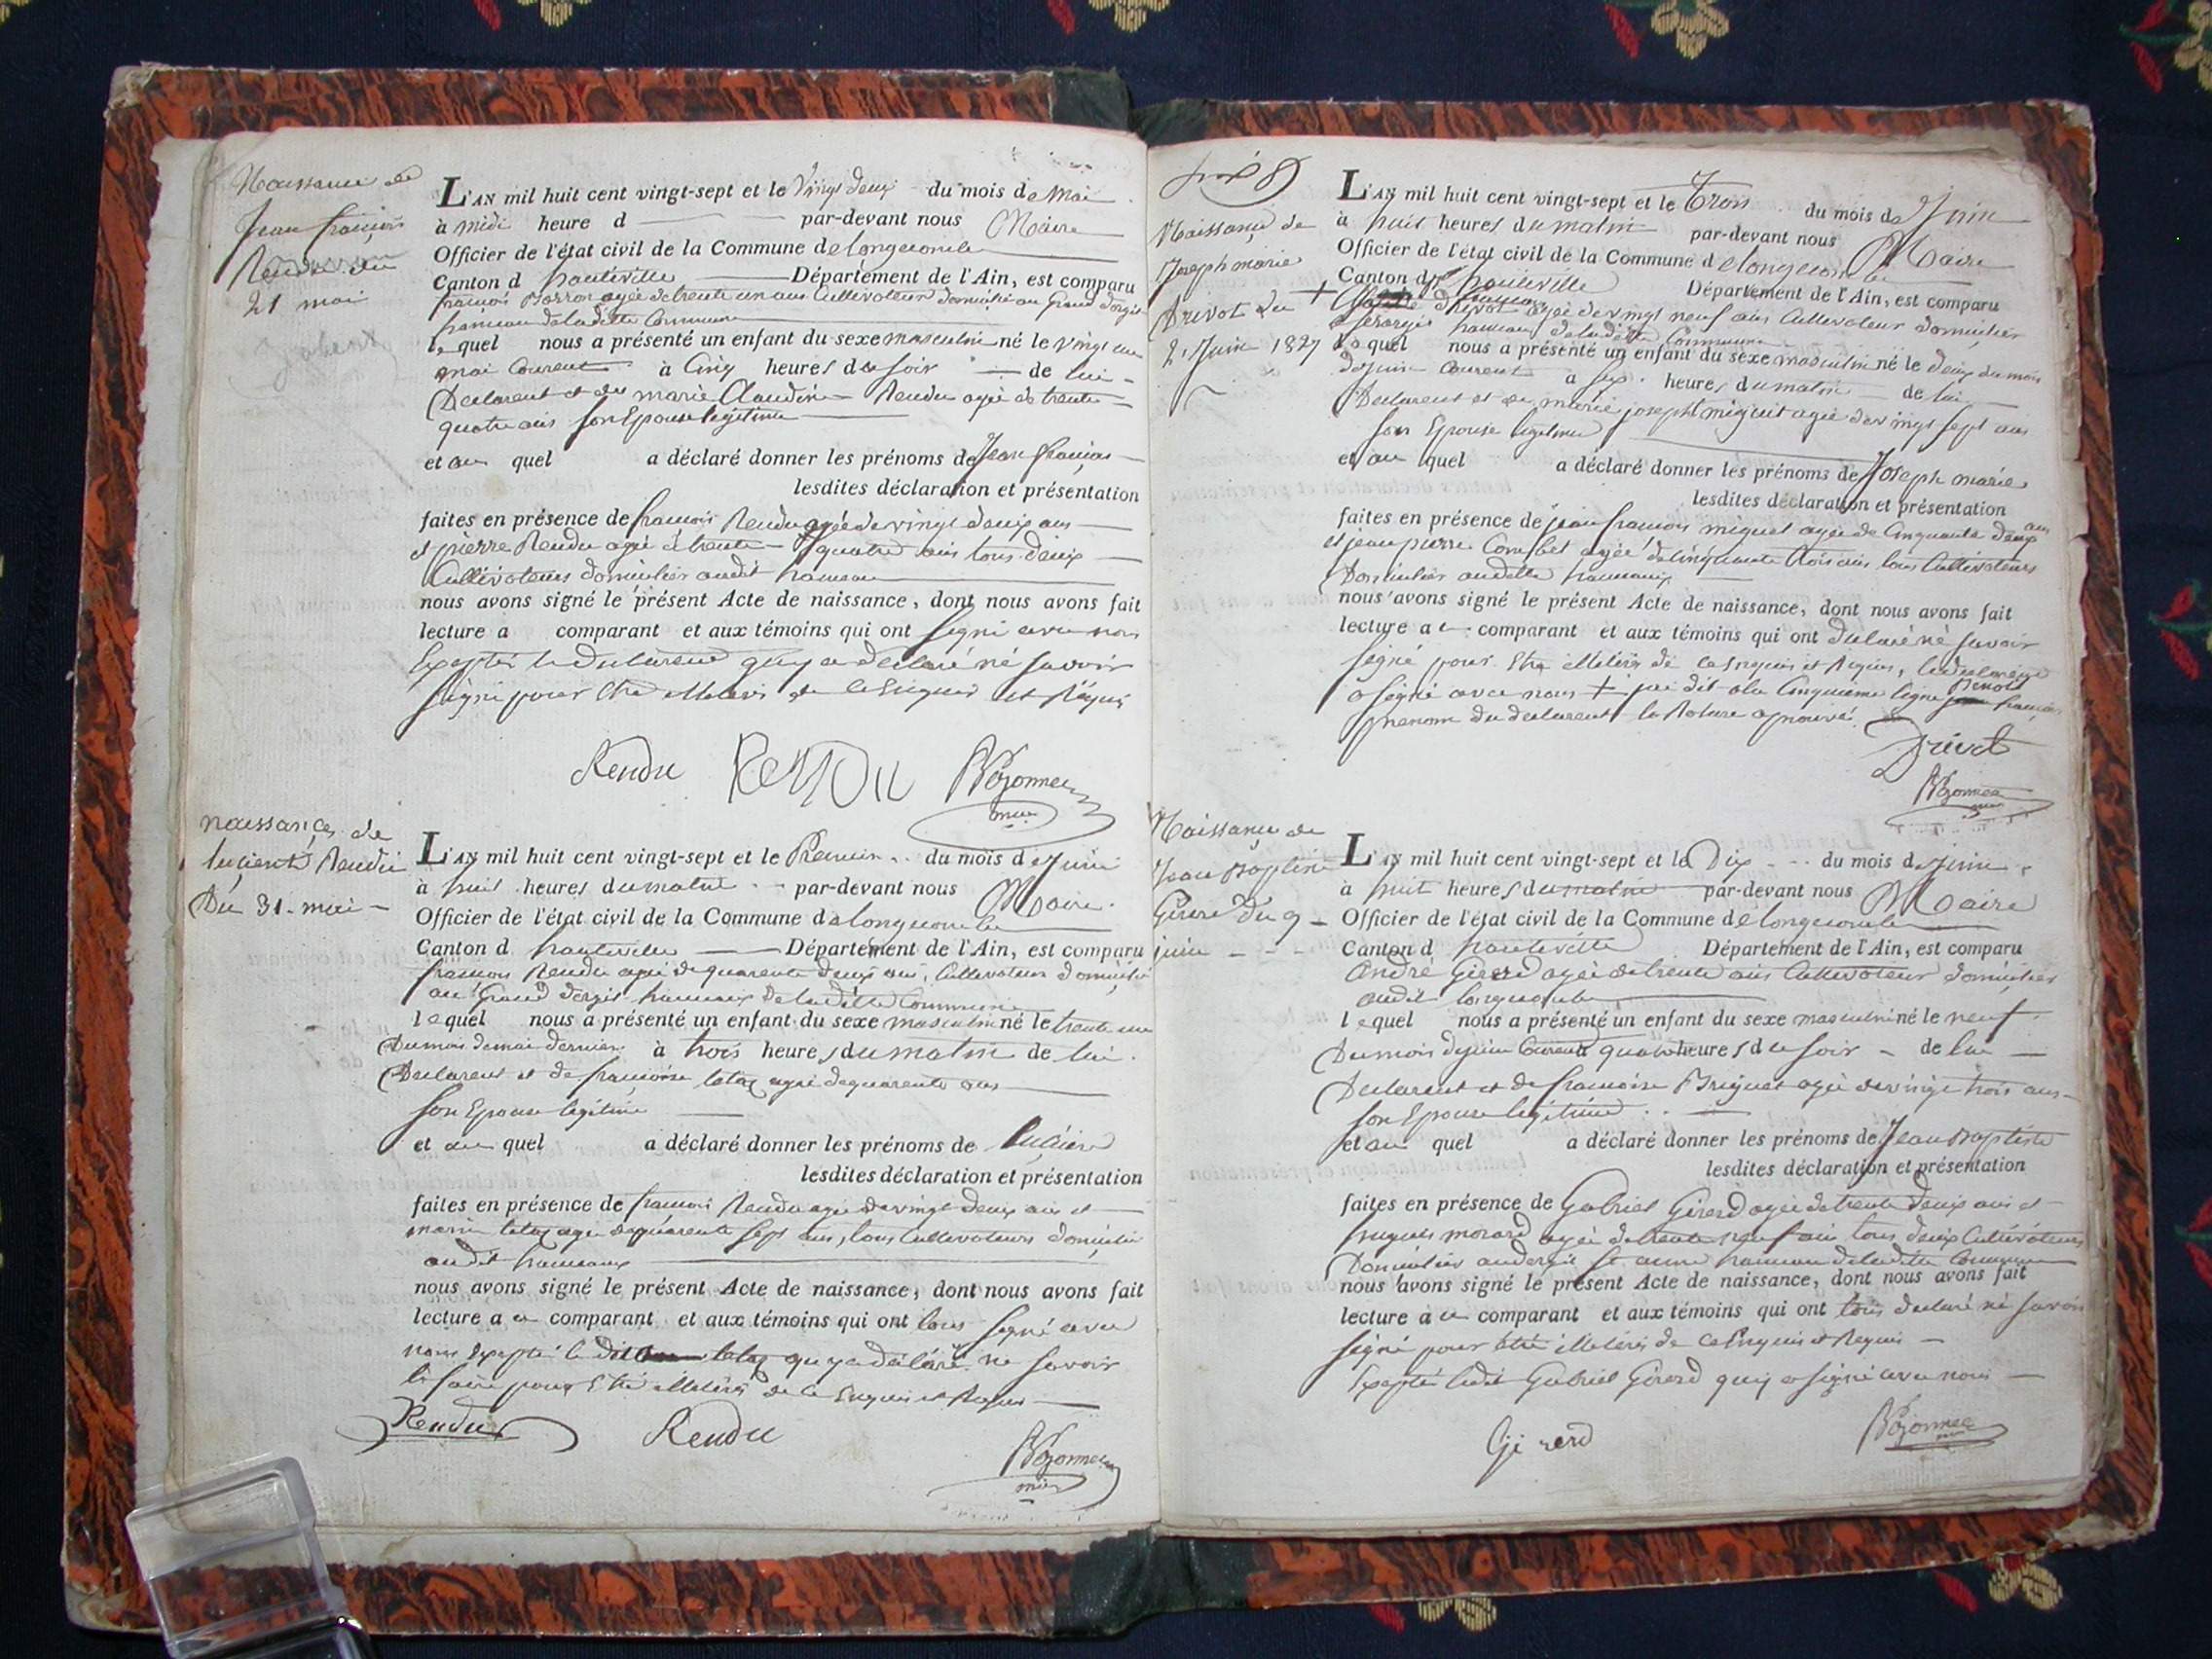 Naissance de
Jean françois
Rendu du
21 mai
L'AN mil huit cent vingt-sept et le Vingt deux du mois de Mai
à midi heure d par-devant nous Maire
Officier de l'état civil de la Commune de longecombe
Canton d hauteville Département de l'Ain, est comparu
françois Borron agée de trente un ans Cultivateur domicilié au Grand dergit
hameau de laditte Commune
lequel nous a présenté un enfant du sexe masculin né le vingt un
mai Courent à Cinq heures du soir de lui
Declarent et de marie Claudine Rendu agée de trente
quatre ans son Epouse legitime
et au quel a déclaré donner les prénoms de Jean françois
lesdites déclaration et présentation
faites en présence de françois Rendu agée de vingt deux ans
et pierre Rendu agée de trente quatre ans tous deux
Cultivateurs domicilier audit hameau
nous avons signé le présent Acte de naissance, dont nous avons fait
lecture a comparant et aux témoins qui ont signé avec nous
Excepter le declarent quy a declaré né savoir
signé pour Etre illeteris de ce Enquis et Réquis
Rendu Rendu Bozonnet
mire
naissance de
lucient Rendu
Du 31 mai
L'AN mil huit cent vingt-sept et le Premier du mois d Juin
à huit heures du matin par-devant nous Maire
Officier de l'état civil de la Commune de longecombe
Canton d hauteville Département de l'Ain, est comparu
françois Rendu agée de quarente deux ans, Cultivateur domicilié
au Grand dergit hameaux de laditte Commune
lequel nous a présenté un enfant du sexe masculin né le trente un
Du mois de mai dernier à trois heures du matin de lui
Declarent et de françoise agée de quarente ans
son Epouse legitime
et au quel a déclaré donner les prénoms de lucient
lesdites déclaration et présentation
faites en présence de françois Rendu agée de vingt deux ans et
marin agée de quarente sept ans, tous Cultivateurs domicilié
audit hameaux
nous avons signé le présent Acte de naissance, dont nous avons fait
lecture a ce comparant et aux témoins qui ont tous signé avec
nous Excepté le dit quy a déclaré ne savoir
le faire pour Etre illeteris de ce Enquis et Requis
Rendu Rendu Bozonnet
mire
Naissance de
Joseph marie
Drivot du
2 Juin 1827
L'AN mil huit cent vingt-sept et le Trois du mois de Juin
à huit heures du matin par-devant nous Maire
Officier de l'état civil de la Commune de longecombe
Canton d hauteville Département de l'Ain, est comparu
françois Drivot agée de vingt neuf ans Cultivateur domicilier
hameau de laditte Commune
lequel nous a présenté un enfant du sexe masculin né le deux du mois
de Juin Courent à six heures du matin de lui
Declarent et de marie joseph miguet agée de vingt sept ans
son Epouse legitime
et au quel a déclaré donner les prénoms de Joseph marie
lesdites déclaration et présentation
faites en présence de jean françois miguet agée de Cinquante deux ans
et jean pierre Combet agée de Cinquante trois ans tous Cultivateurs
Domicilier audette hameaux
nous avons signé le présent Acte de naissance, dont nous avons fait
lecture a ce comparant et aux témoins qui ont declaré né savoir
signé pour Etre illeteris de ce Enquis et Requis, le declarent
a signé avec nous + j'ai dit a la Cinquieme ligne Benoit françois
prenom du declarent la Rature aprouvé
Drivot
Bozonnet
mire
Naissance de
Jean Baptiste
Girerd Du 9
juin
L'AN mil huit cent vingt-sept et le Dix du mois de Juin
à huit heures du matin par-devant nous Maire
Officier de l'état civil de la Commune de longecombe
Canton d hauteville Département de l'Ain, est comparu
André Girerd agée de trente ans Cultivateur domicilier
audit longecombe
lequel nous a présenté un enfant du sexe masculin né le neuf
Du mois de juin Courent quatre heures du soir de lui
Declarent et de françoise agée de vingt trois ans
son Epouse legitime
et au quel a déclaré donner les prénoms de Jean Baptiste
lesdites déclaration et présentation
faites en présence de Gabriel Girerd agée de trente deux ans et
hugues morard agée de trente neuf ans tous deux Cultivateurs
Domicilier au dergit hameau de ladette Commune
nous avons signé le présent Acte de naissance, dont nous avons fait
lecture a ce comparant et aux témoins qui ont tous declaré né savoir
signé pour etre illeteris de ce Enquis et Requis
Excepté ledit Gabriel Girerd quy a signé avec nous
Gi rerd Bozonnet
mire